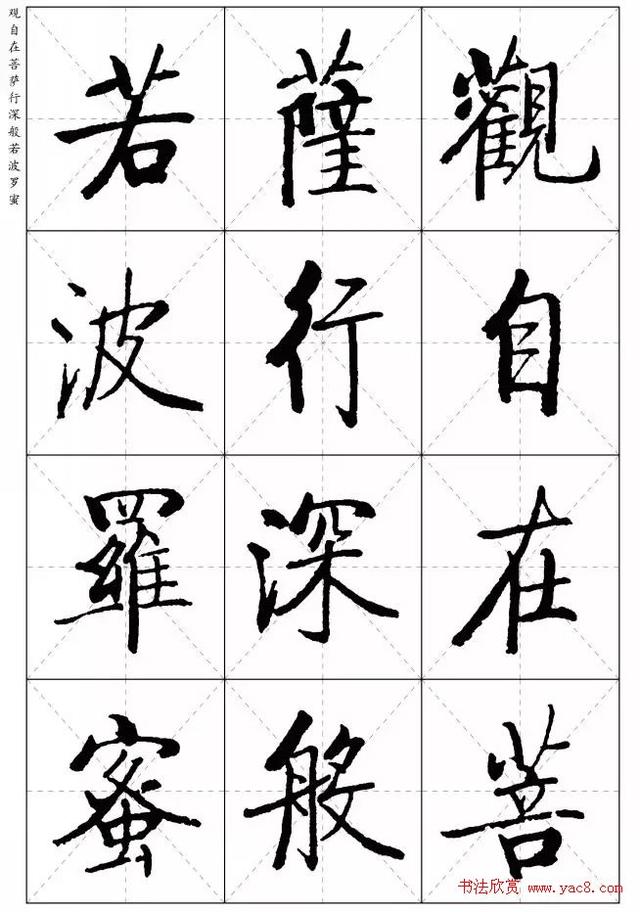 觀自在菩
薩行深般
若波羅蜜
观自在菩萨行深般若波罗蜜
书法欣赏 www.yac8.com